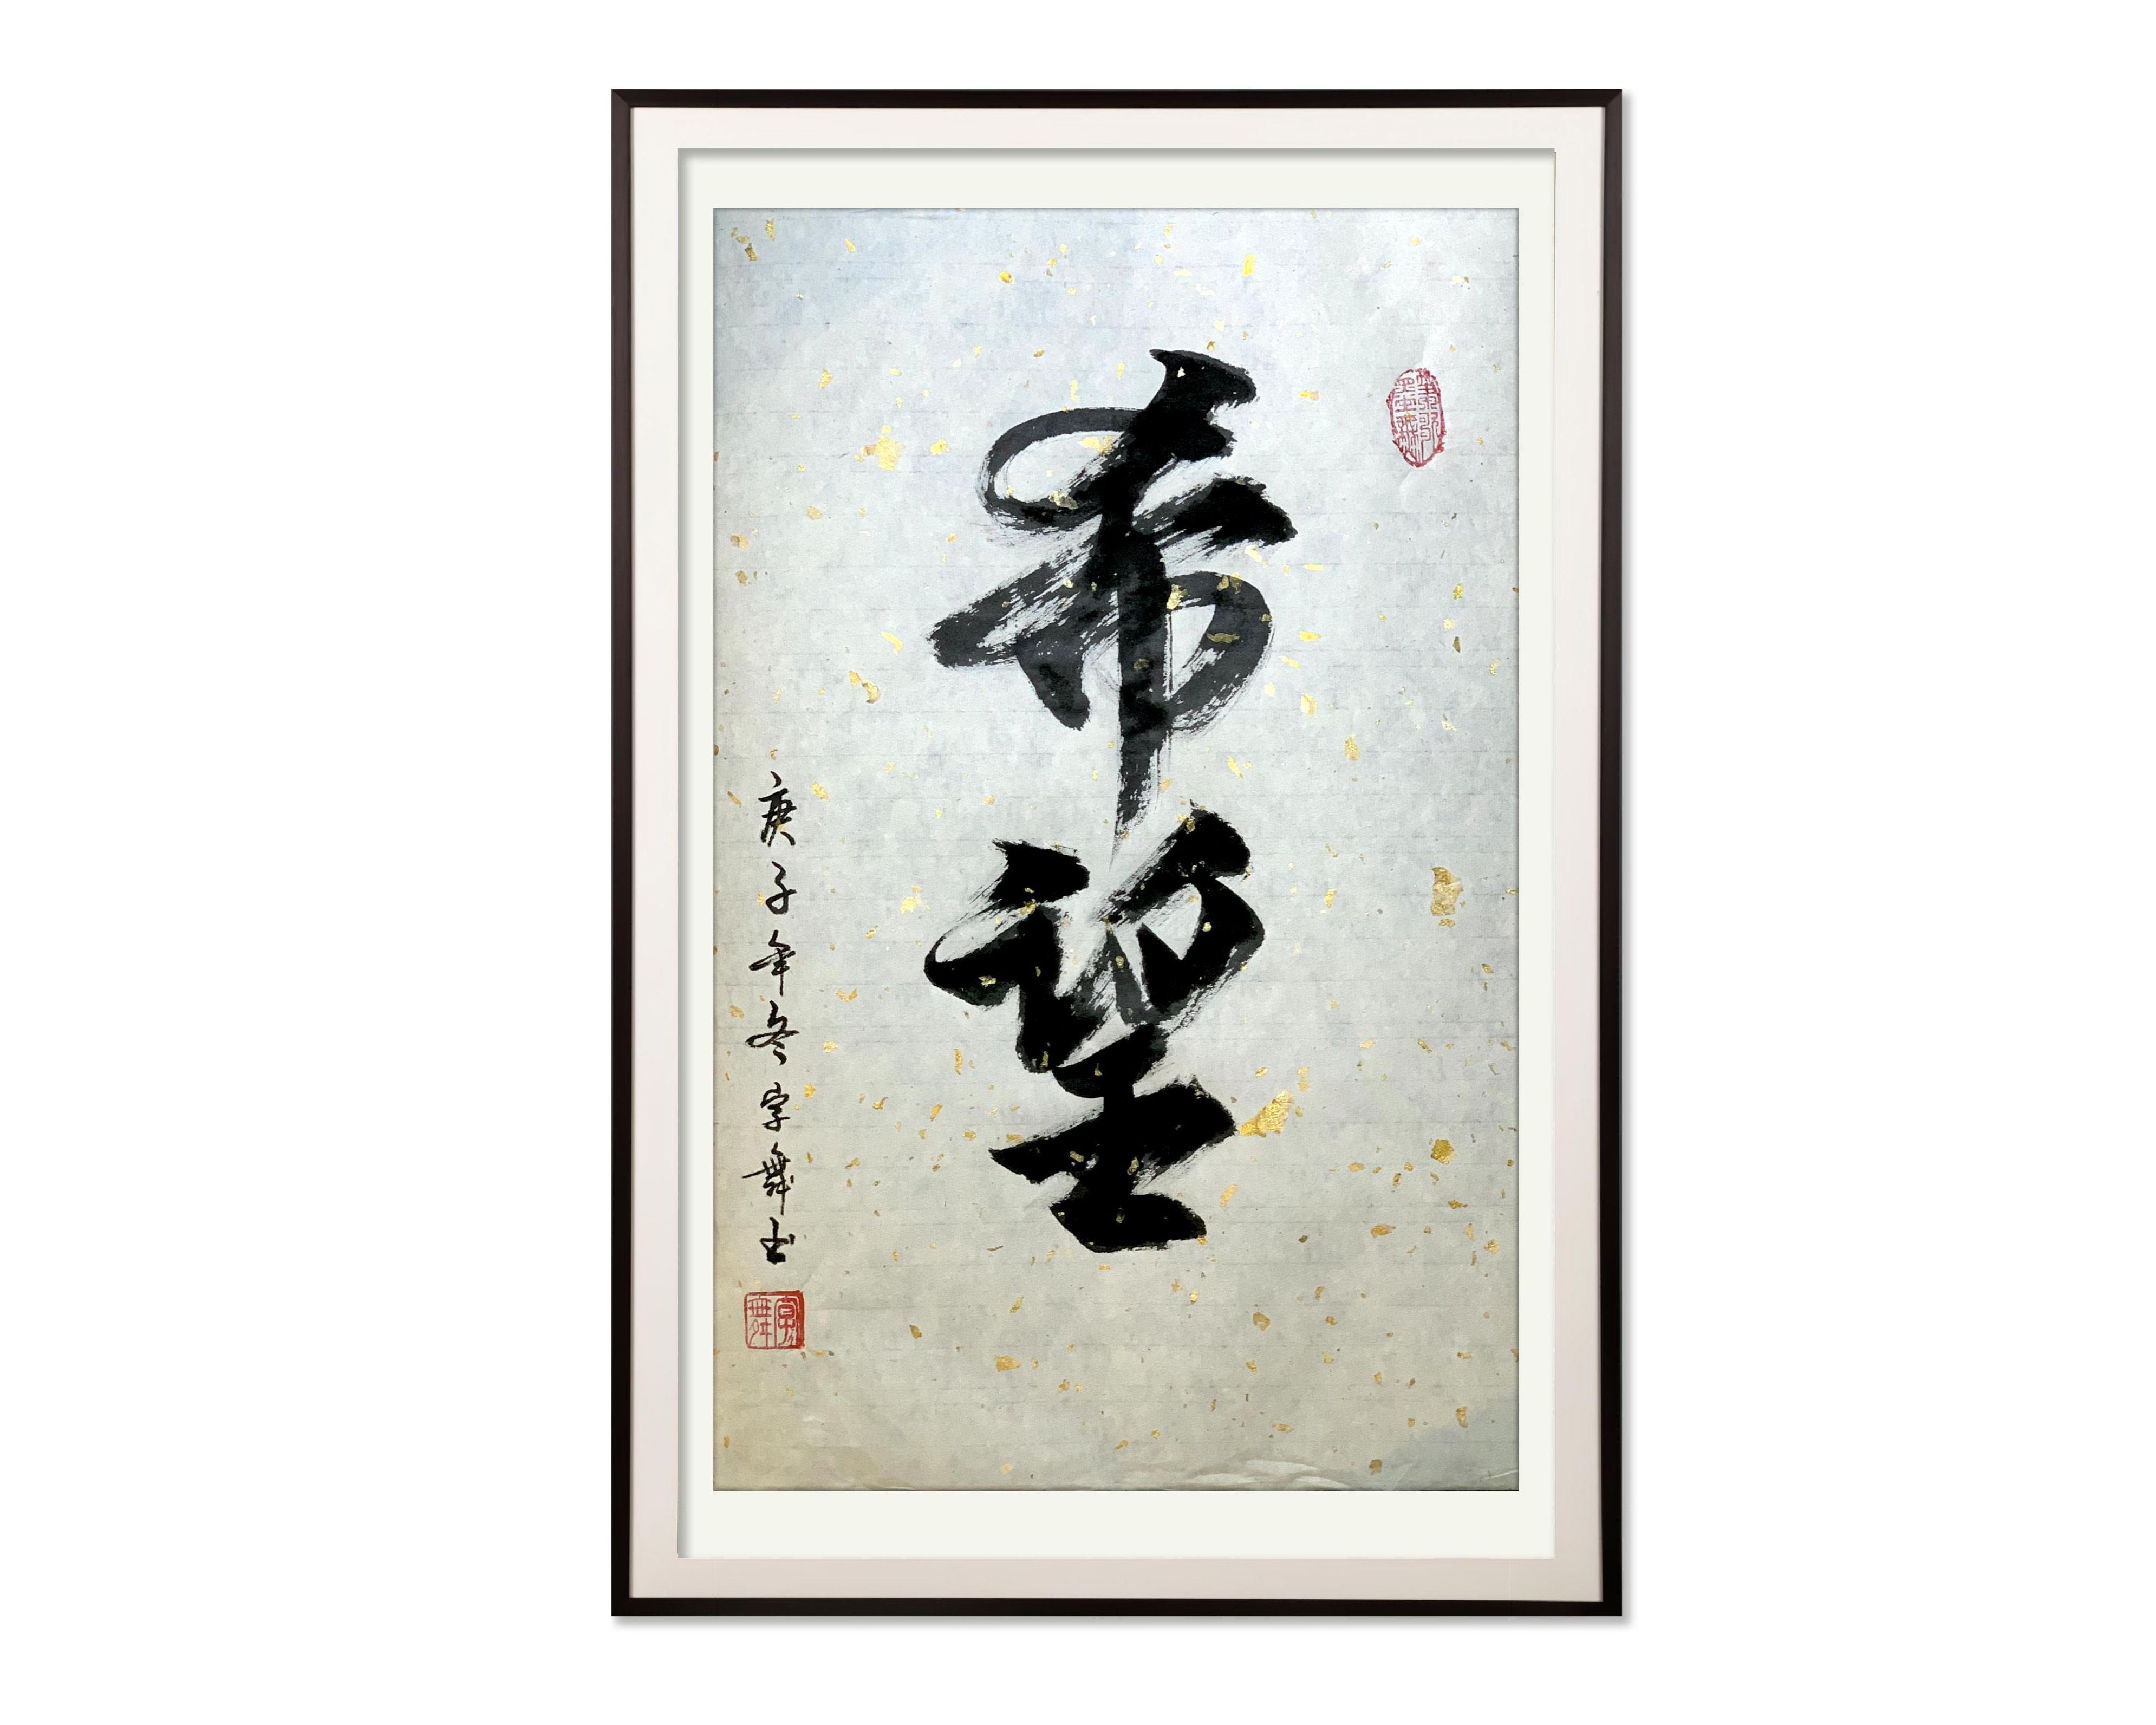 希望
庚子年冬字舞书
字舞